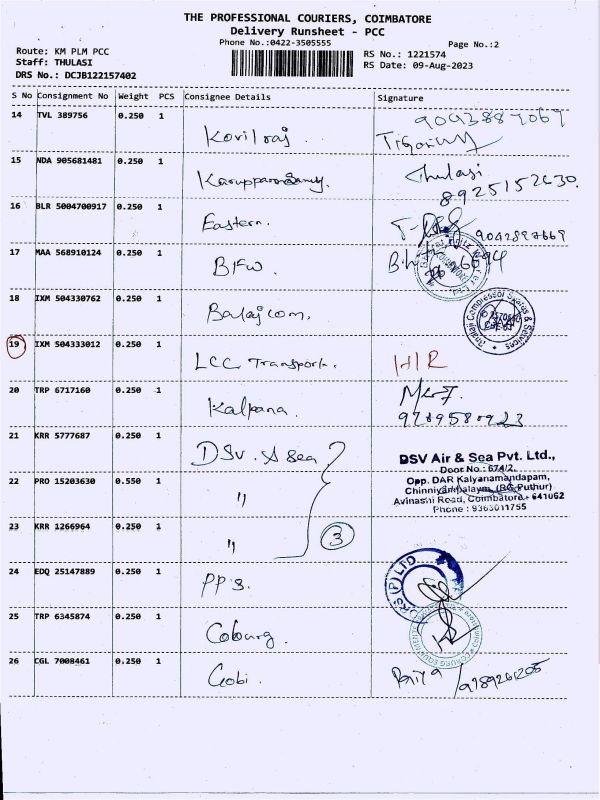 THE PROFESSIONAL COURIERS, COIMBATORE
Delivery Runsheet - PCC
Phone No.:0422-3505555
Page No.:2
Route: KM PLM PCC
Staff: THULASI
DRS No.: DCJB122157402
RS No.: 1221574
RS Date: 09-Aug-2023
S No Consignment No Weight PCS Consignee Details Signature
14 TVL 389756 0.250 1 Kovilraj
15 NDA 905681481 0.250 1 Thulasi
8925152630
16 BLR 5004700917 0.250 1 Eastern.
17 MAA 568910124 0.250 1 BFW
18 IXM 504330762 0.250 1 Balaji com.
19 IXM 504333012 0.250 1 LCC Transport. H/R
20 TRP 6717160 0.250 1 Kalpana.
21 KRR 5777687 0.250 1 DSV. A Sea
DSV Air & Sea Pvt. Ltd.,
Door No : 674/2,
Opp. DAR Kalyanamandapam,
Chinniyampalayam, (RG Puthur)
Avinashi Road, Coimbatore - 641062
Phone : 9363011755
22 PRO 15203630 0.550 1 "
23 KRR 1266964 0.250 1 "
3
24 EDQ 25147889 0.250 1 PPS.
25 TRP 6345874 0.250 1 Coburg.
26 CGL 7008461 0.250 1 Gobi. Priya